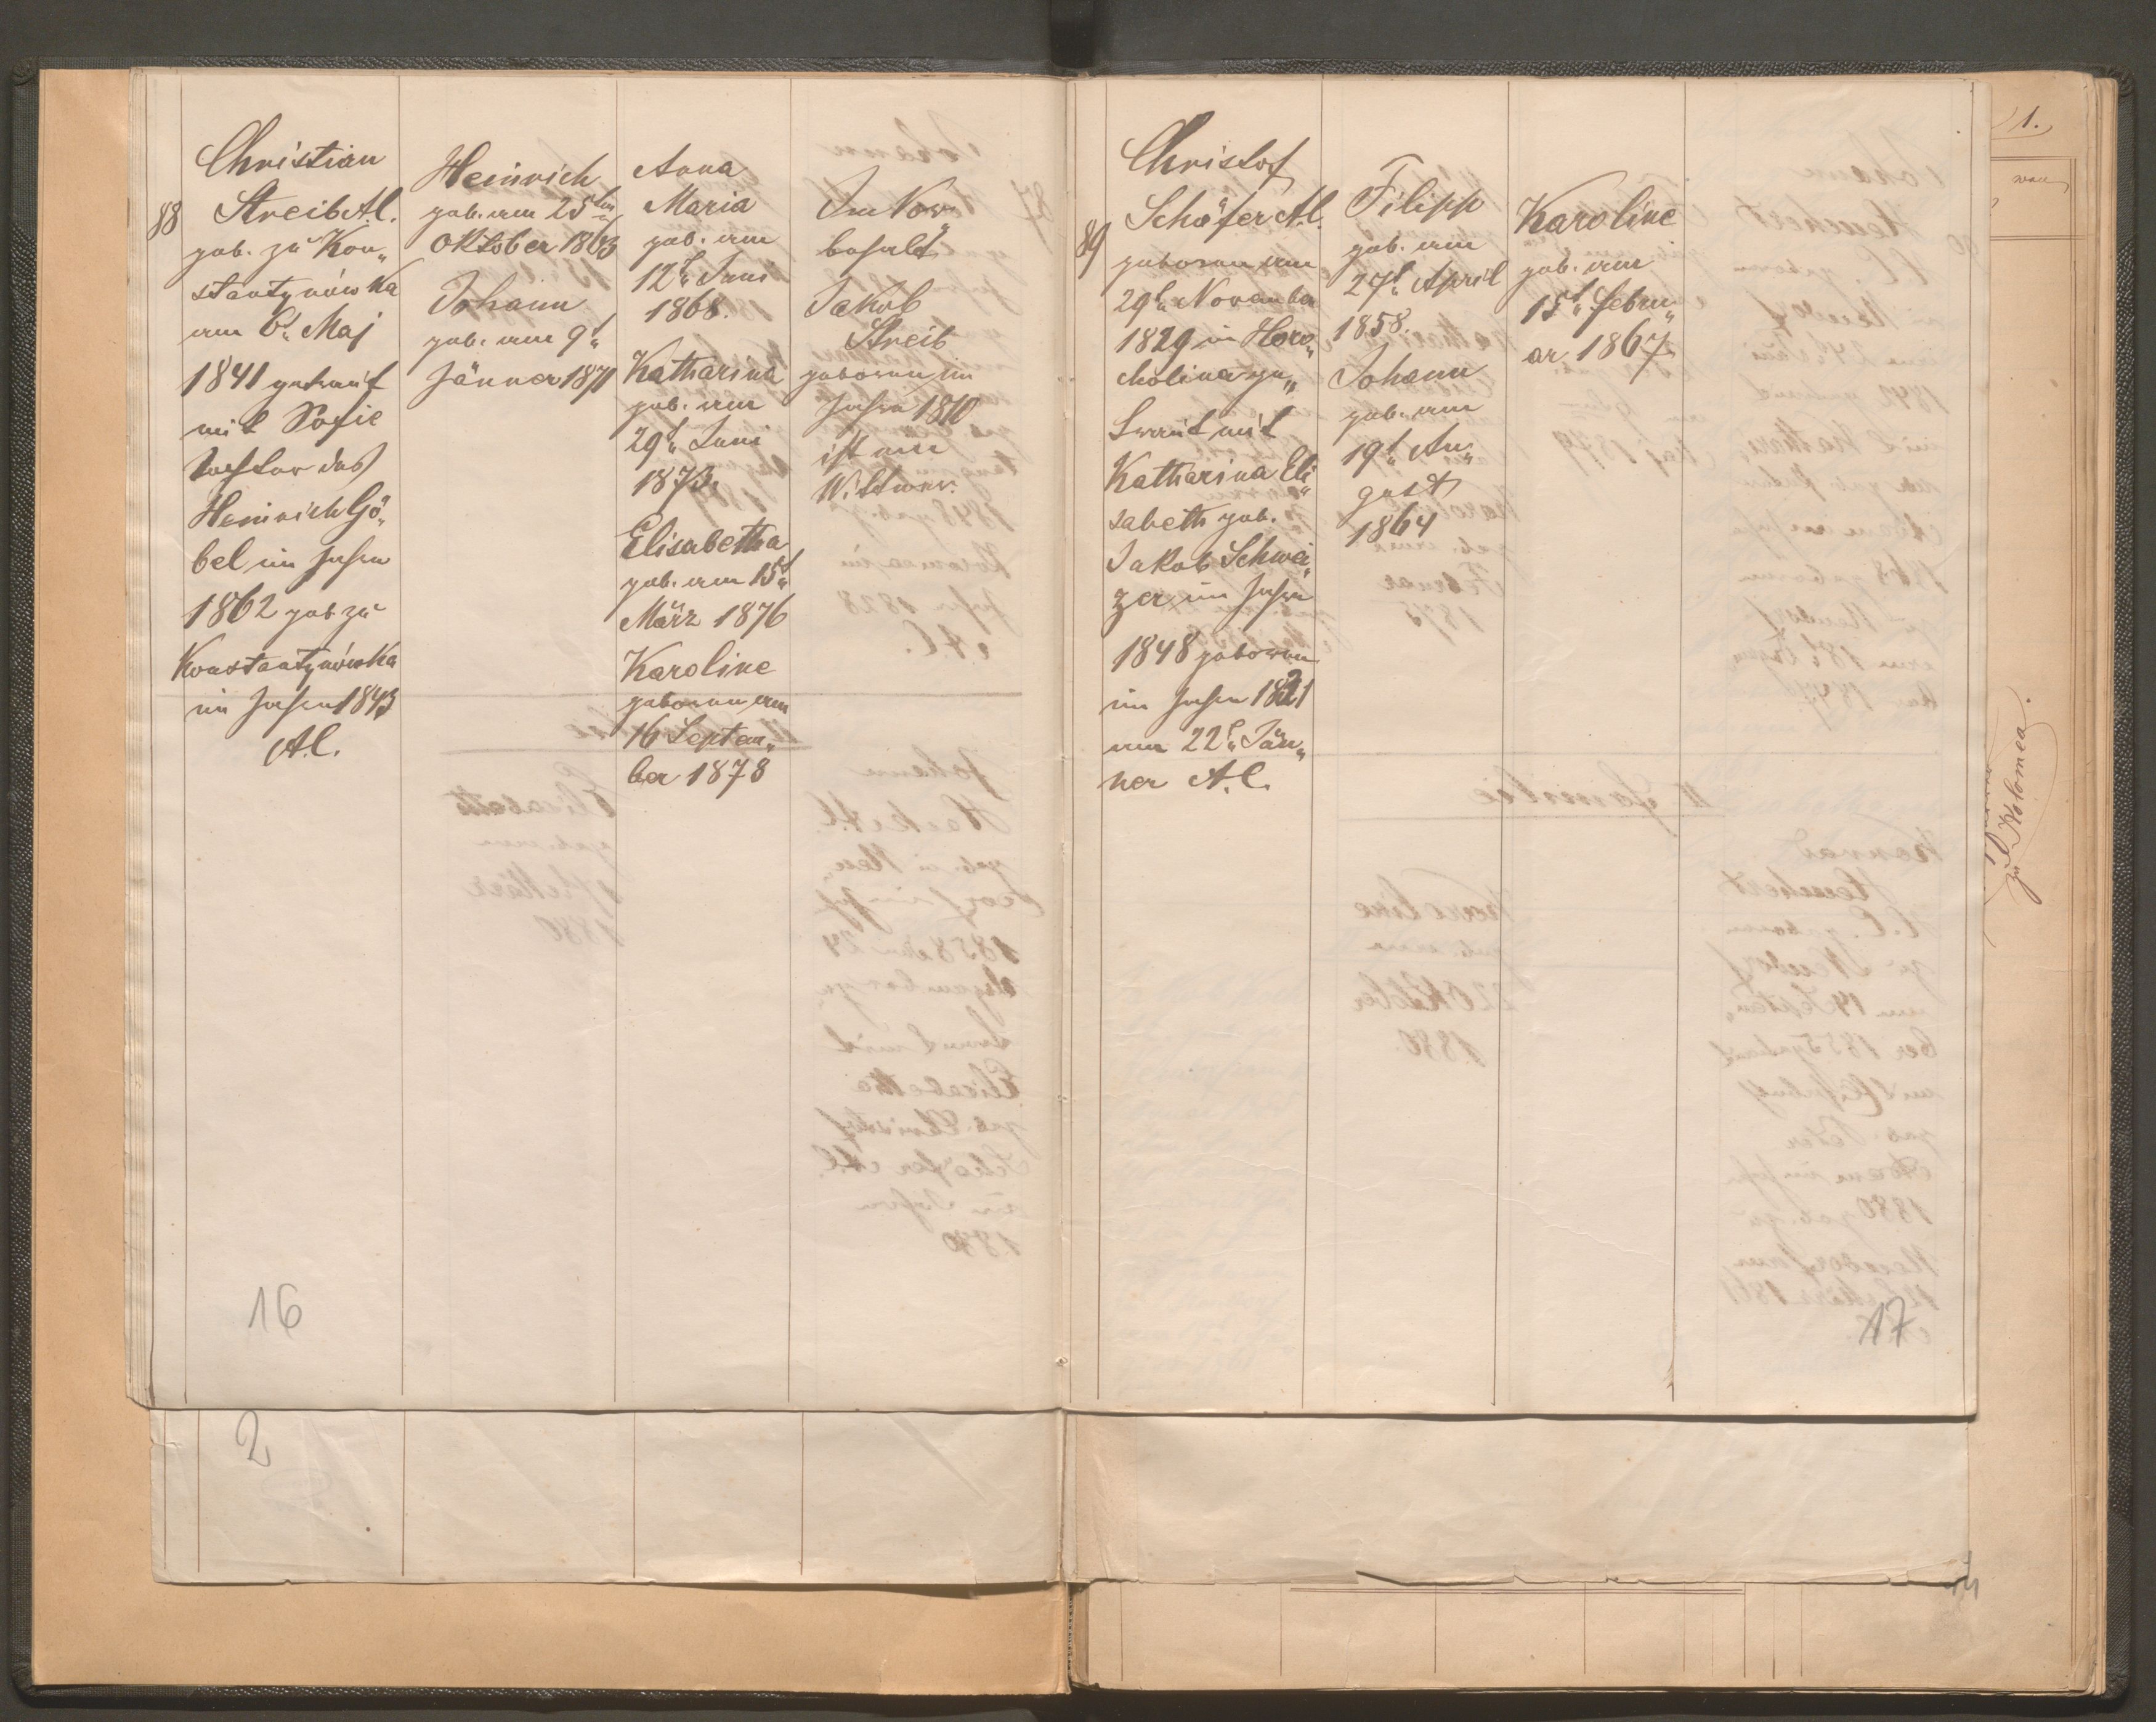 88
Christian
Streib A.C.
geb. zu Kon„
stantynówka
am 6t. Maj
1841 getraut
mit Sofie
Tochter des
Heinrich Gö„
bel im Jahre
1862 geb zu
Konstantynówka
im Jahre 1843
A.C.
Heinrich
geb. am 25ten
Oktober 1863
Johann
geb. am 9t.
Jänner 1871
Anna
Maria
geb. am
12t. Juni
1868.
Katharina
geb. am
29t. Juni
1873.
Elisabetha
geb. am 15t.
März 1876
Karoline
geboren am
16 Septem„
ber 1878
Im Vor„
behalt
Jakob
Streib
geboren im
Jahre 1810
ist ein
Wittwer.
16
2
89
Christof
Schäfer A.C.
geboren am
29t. November
1829 in Horo„
cholina ge„
traut mit
Katharina Eli„
sabeth geb.
Jakob Schwei„
zer im Jahre
1848 geboren
im Jahre 1831
am 22t. Jän„
ner A.C.
Filipp
geb. am
27t. April
1858.
Johann
geb. am
19t. Au„
gust
1864
Karoline
geb. am
15t. Febru„
ar 1867
17
1.
zu Kolomea.